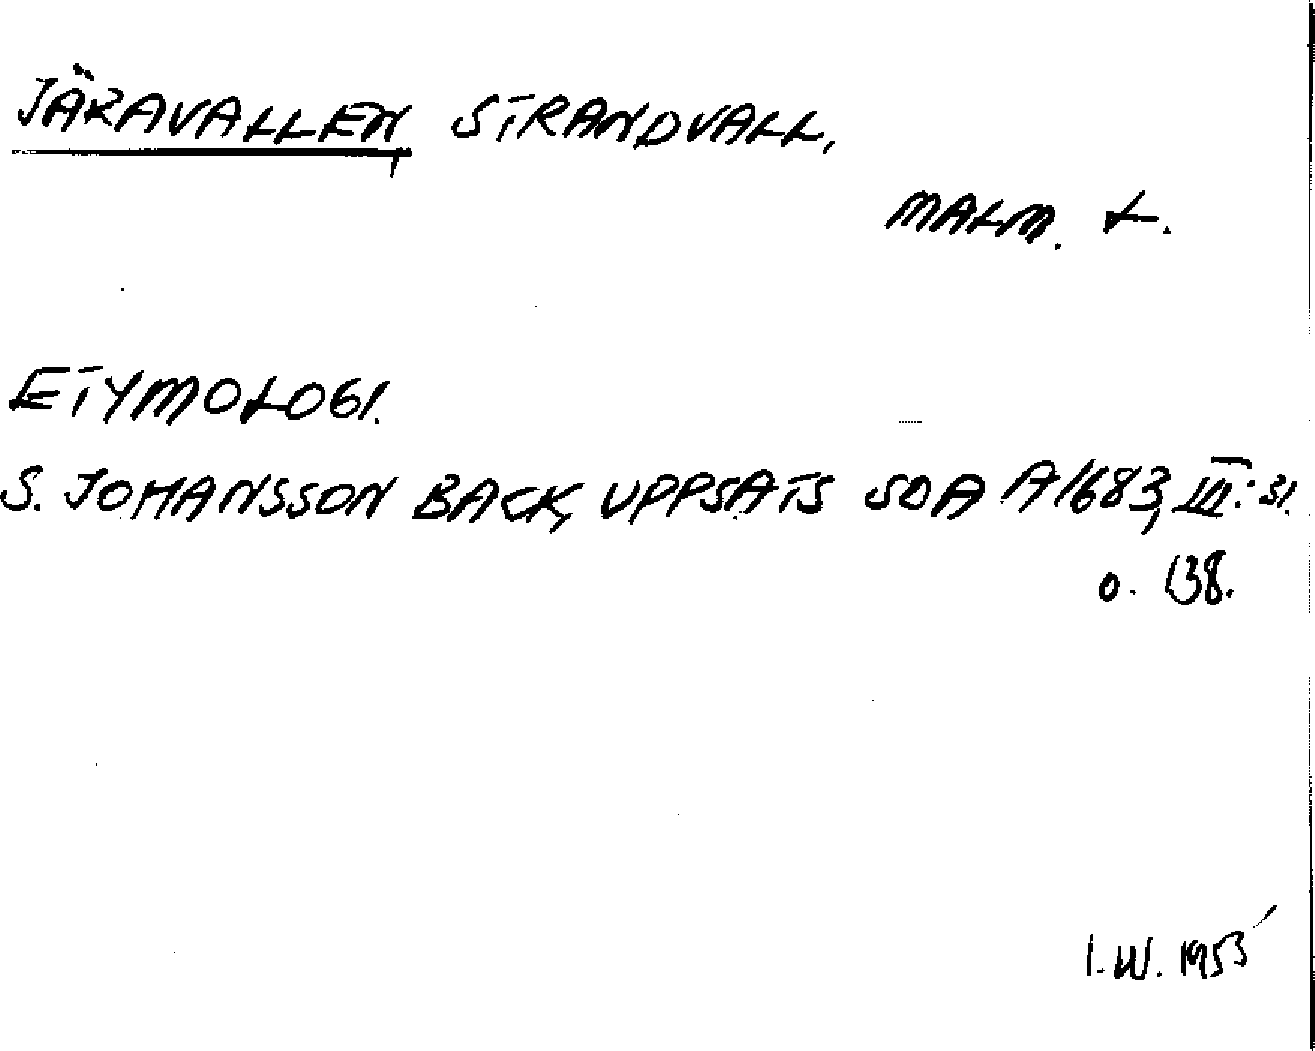 JÄRAVALLEN, STRANDVALL,
MALM. L.
ETYMOLOGI.
S. JOHANSSON BACK, UPPSATS SDA A1683, III: 31.
o. 138.
I.W. 1953